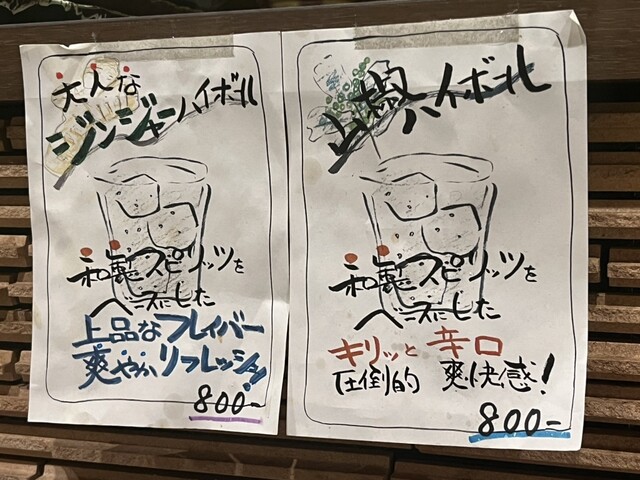 大人な
ジンジャーハイボール
和製スピリッツを
ベースにした
上品なフレイバー
爽やかリフレッシュ!
800-
山椒ハイボール
和製スピリッツを
ベースにした
キリッと辛口
圧倒的 爽快感!
800-